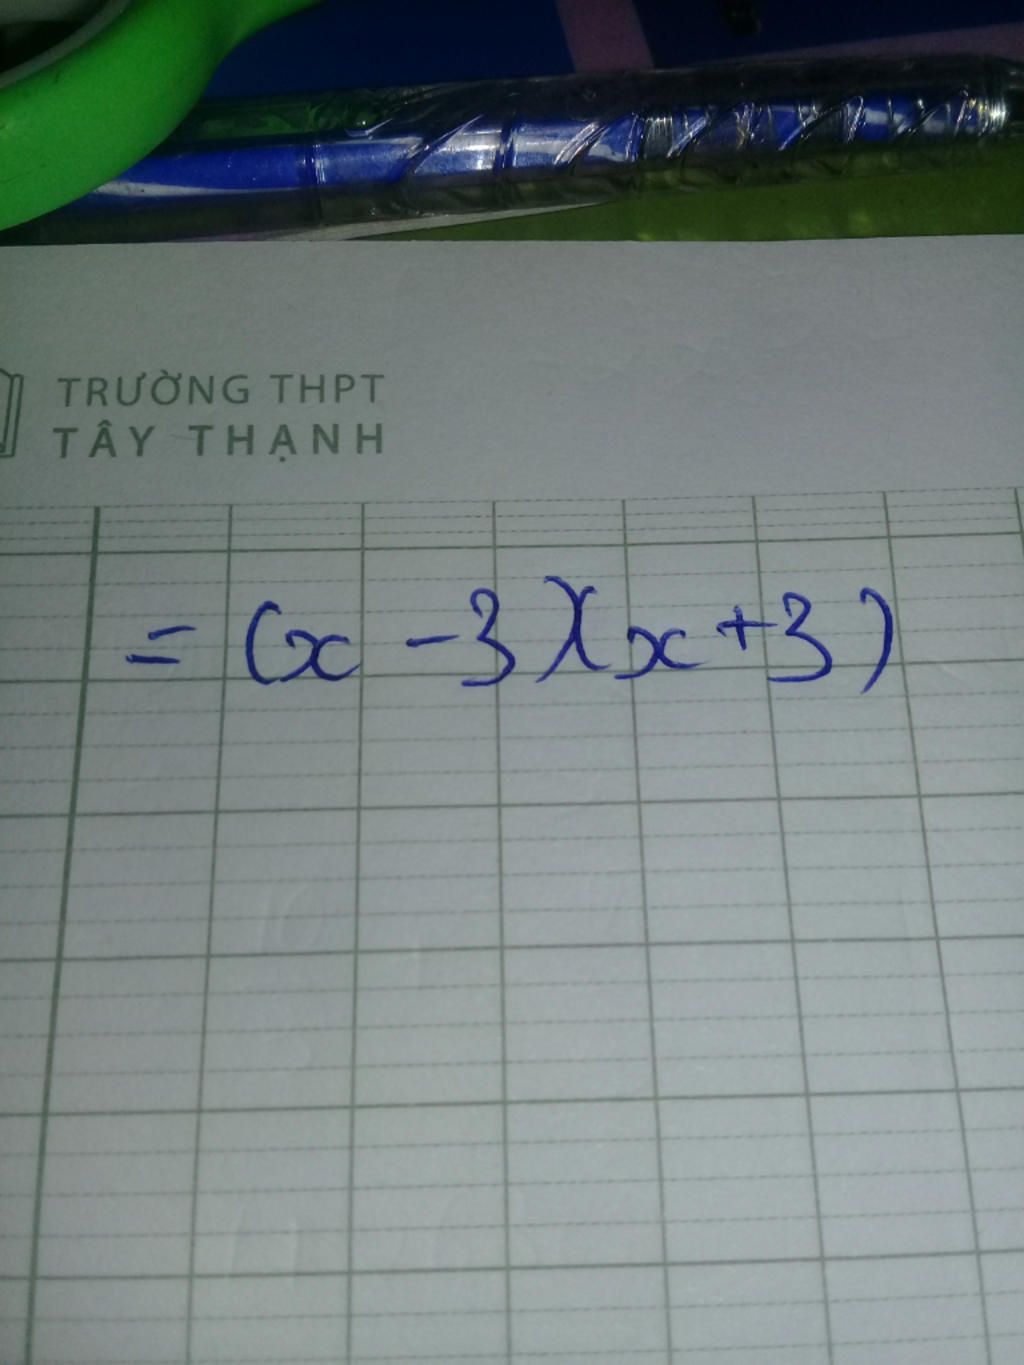 TRƯỜNG THPT
TÂY THẠNH
= (x - 3)(x + 3)